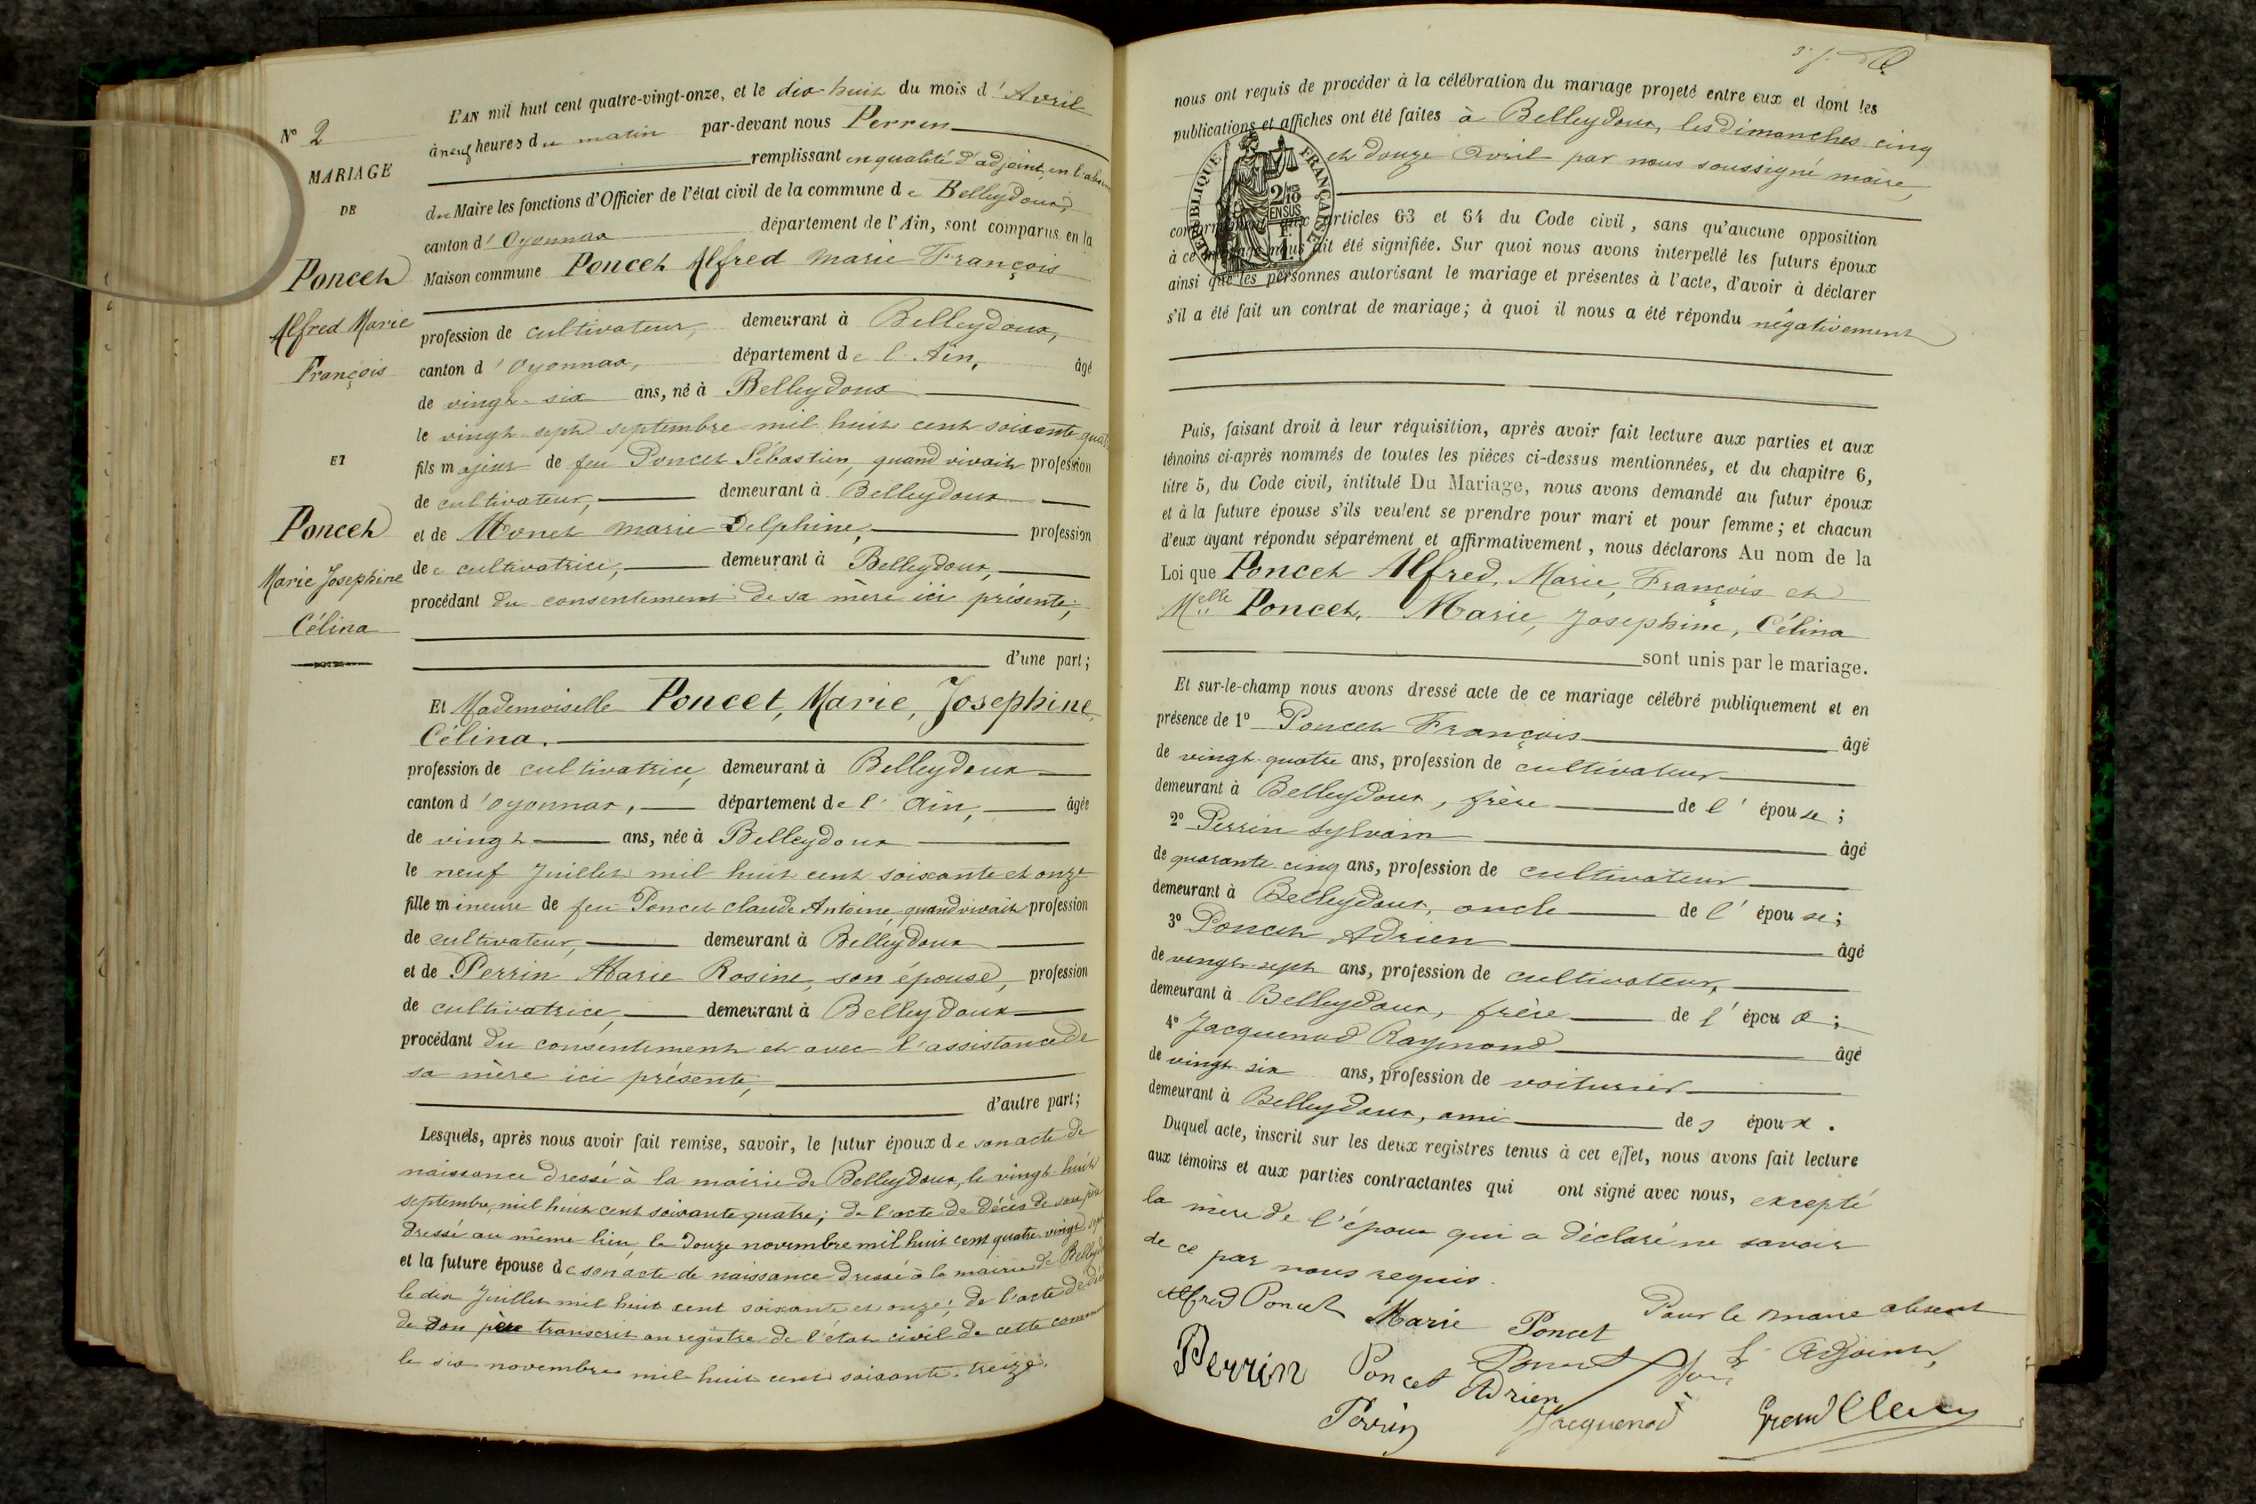 N° 2
MARIAGE
DE
Poncet
Alfred Marie
François
ET
Poncet
Marie Josephine
Célina
L'AN mil huit cent quatre-vingt-onze, et le dix-huit du mois d'Avril
à neuf heures du matin par-devant nous Perrin
remplissant en qualité d'adjoint, en l'absence
du Maire les fonctions d'Officier de l'état civil de la commune de Belleydoux,
canton d'Oyonnax département de l'Ain, sont comparus en la
Maison commune Poncet Alfred Marie François
profession de cultivateur, demeurant à Belleydoux,
canton d'Oyonnax, département de l'Ain, âgé
de vingt-six ans, né à Belleydoux
le vingt sept septembre mil huit cent soixante quatre
fils majeur de feu Poncet Sébastien, quand vivait profession
de cultivateur, demeurant à Belleydoux
et de Monet Marie Delphine, profession
de cultivatrice, demeurant à Belleydoux,
procédant du consentement de sa mère ici présente,
d'une part;
Et Mademoiselle Poncet, Marie, Josephine,
Célina.
profession de cultivatrice, demeurant à Belleydoux
canton d'oyonnax, département de l'Ain, âgée
de vingt ans, née à Belleydoux
le neuf Juillet mil huit cent soixante et onze
fille mineure de feu Poncet Claude Antoine, quand vivait profession
de cultivateur, demeurant à Belleydoux
et de Perrin Marie Rosine, son épouse, profession
de cultivatrice, demeurant à Belleydoux
procédant du consentement et avec l'assistance de
sa mère ici présente,
d'autre part;
Lesquels, après nous avoir fait remise, savoir, le futur époux de son acte de
naissance dressé à la mairie de Belleydoux, le vingt-huit
septembre, mil huit cent soixante quatre; de l'acte de décès de son père
dressé au même lieu, le douze novembre mil huit cent quatre-vingt sept
et la future épouse de son acte de naissance dressé à la mairie de Belleydoux
le dix Juillet mil huit cent soixante et onze; de l'acte de décès
de son père transcrit au registre de l'état civil de cette commune
le six novembre mil huit cent soixante-treize.
nous ont requis de procéder à la célébration du mariage projeté entre eux et dont les
publications et affiches ont été faites à Belleydoux, les dimanches cinq
et douze Avril par nous soussigné maire,
RÉPUBLIQUE FRANÇAISE
2/10
EN SUS
conformément aux articles 63 et 64 du Code civil, sans qu'aucune opposition
à ce mariage nous ait été signifiée. Sur quoi nous avons interpellé les futurs époux
ainsi que les personnes autorisant le mariage et présentes à l'acte, d'avoir à déclarer
s'il a été fait un contrat de mariage; à quoi il nous a été répondu négativement
Puis, faisant droit à leur réquisition, après avoir fait lecture aux parties et aux
témoins ci-après nommés de toutes les pièces ci-dessus mentionnées, et du chapitre 6,
titre 5, du Code civil, intitulé Du Mariage, nous avons demandé au futur époux
et à la future épouse s'ils veulent se prendre pour mari et pour femme; et chacun
d'eux ayant répondu séparément et affirmativement, nous déclarons Au nom de la
Loi que Poncet Alfred, Marie, François et
Melle Poncet, Marie, Josephine, Célina
sont unis par le mariage.
Et sur-le-champ nous avons dressé acte de ce mariage célébré publiquement et en
présence de 1° Poncet François âgé
de vingt-quatre ans, profession de cultivateur
demeurant à Belleydoux, frère de l'épouse;
2° Perrin Sylvain âgé
de quarante-cinq ans, profession de cultivateur
demeurant à Belleydoux, oncle de l'épouse;
3° Poncet Adrien âgé
de vingt-sept ans, profession de cultivateur,
demeurant à Belleydoux, frère de l'épouse;
4° Jacquenod Raymond âgé
de vingt six ans, profession de voiturier
demeurant à Belleydoux, ami des époux.
Duquel acte, inscrit sur les deux registres tenus à cet effet, nous avons fait lecture
aux témoins et aux parties contractantes qui ont signé avec nous, excepté
la mère de l'époux qui a déclaré ne savoir
de ce par nous requis.
Alfred Poncet Marie Poncet Pour le maire absent
Perrin Poncet Poncet L'Adjoint,
Adrien
Perrin Jacquenod